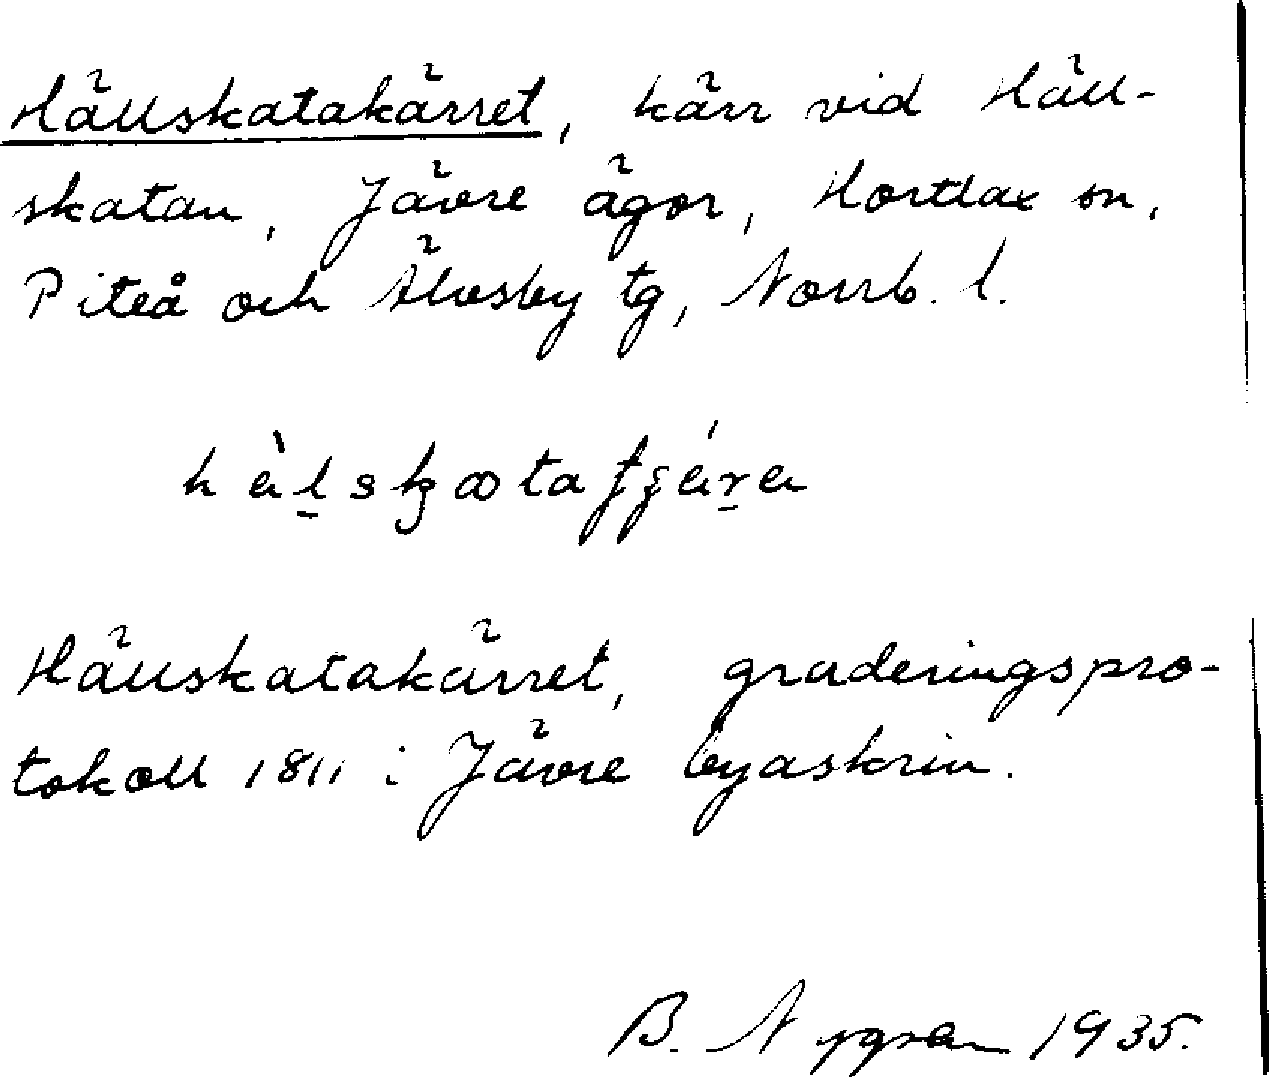 Hällskatakärret, kärr vid Häll-
skatan, Jävre ägor, Hortlax sn,
Piteå och Älvsby tg, Norrb. l.
Hällskatakärret, graderingspro-
tokoll 1811 i Jävre byaskrin.
B. Nygren 1935.